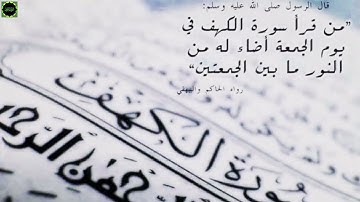 قال الرسول صلى الله عليه وسلم:
"من قرأ سورة الكهف في
يوم الجمعة أضاء له من
النور ما بين الجمعتين"
رواه الحاكم والبيهقي
سورة الكهف